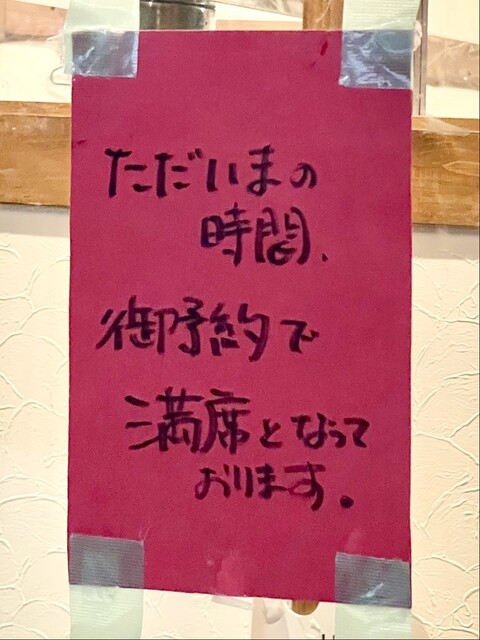 ただいまの
時間、
御予約で
満席となって
おります。